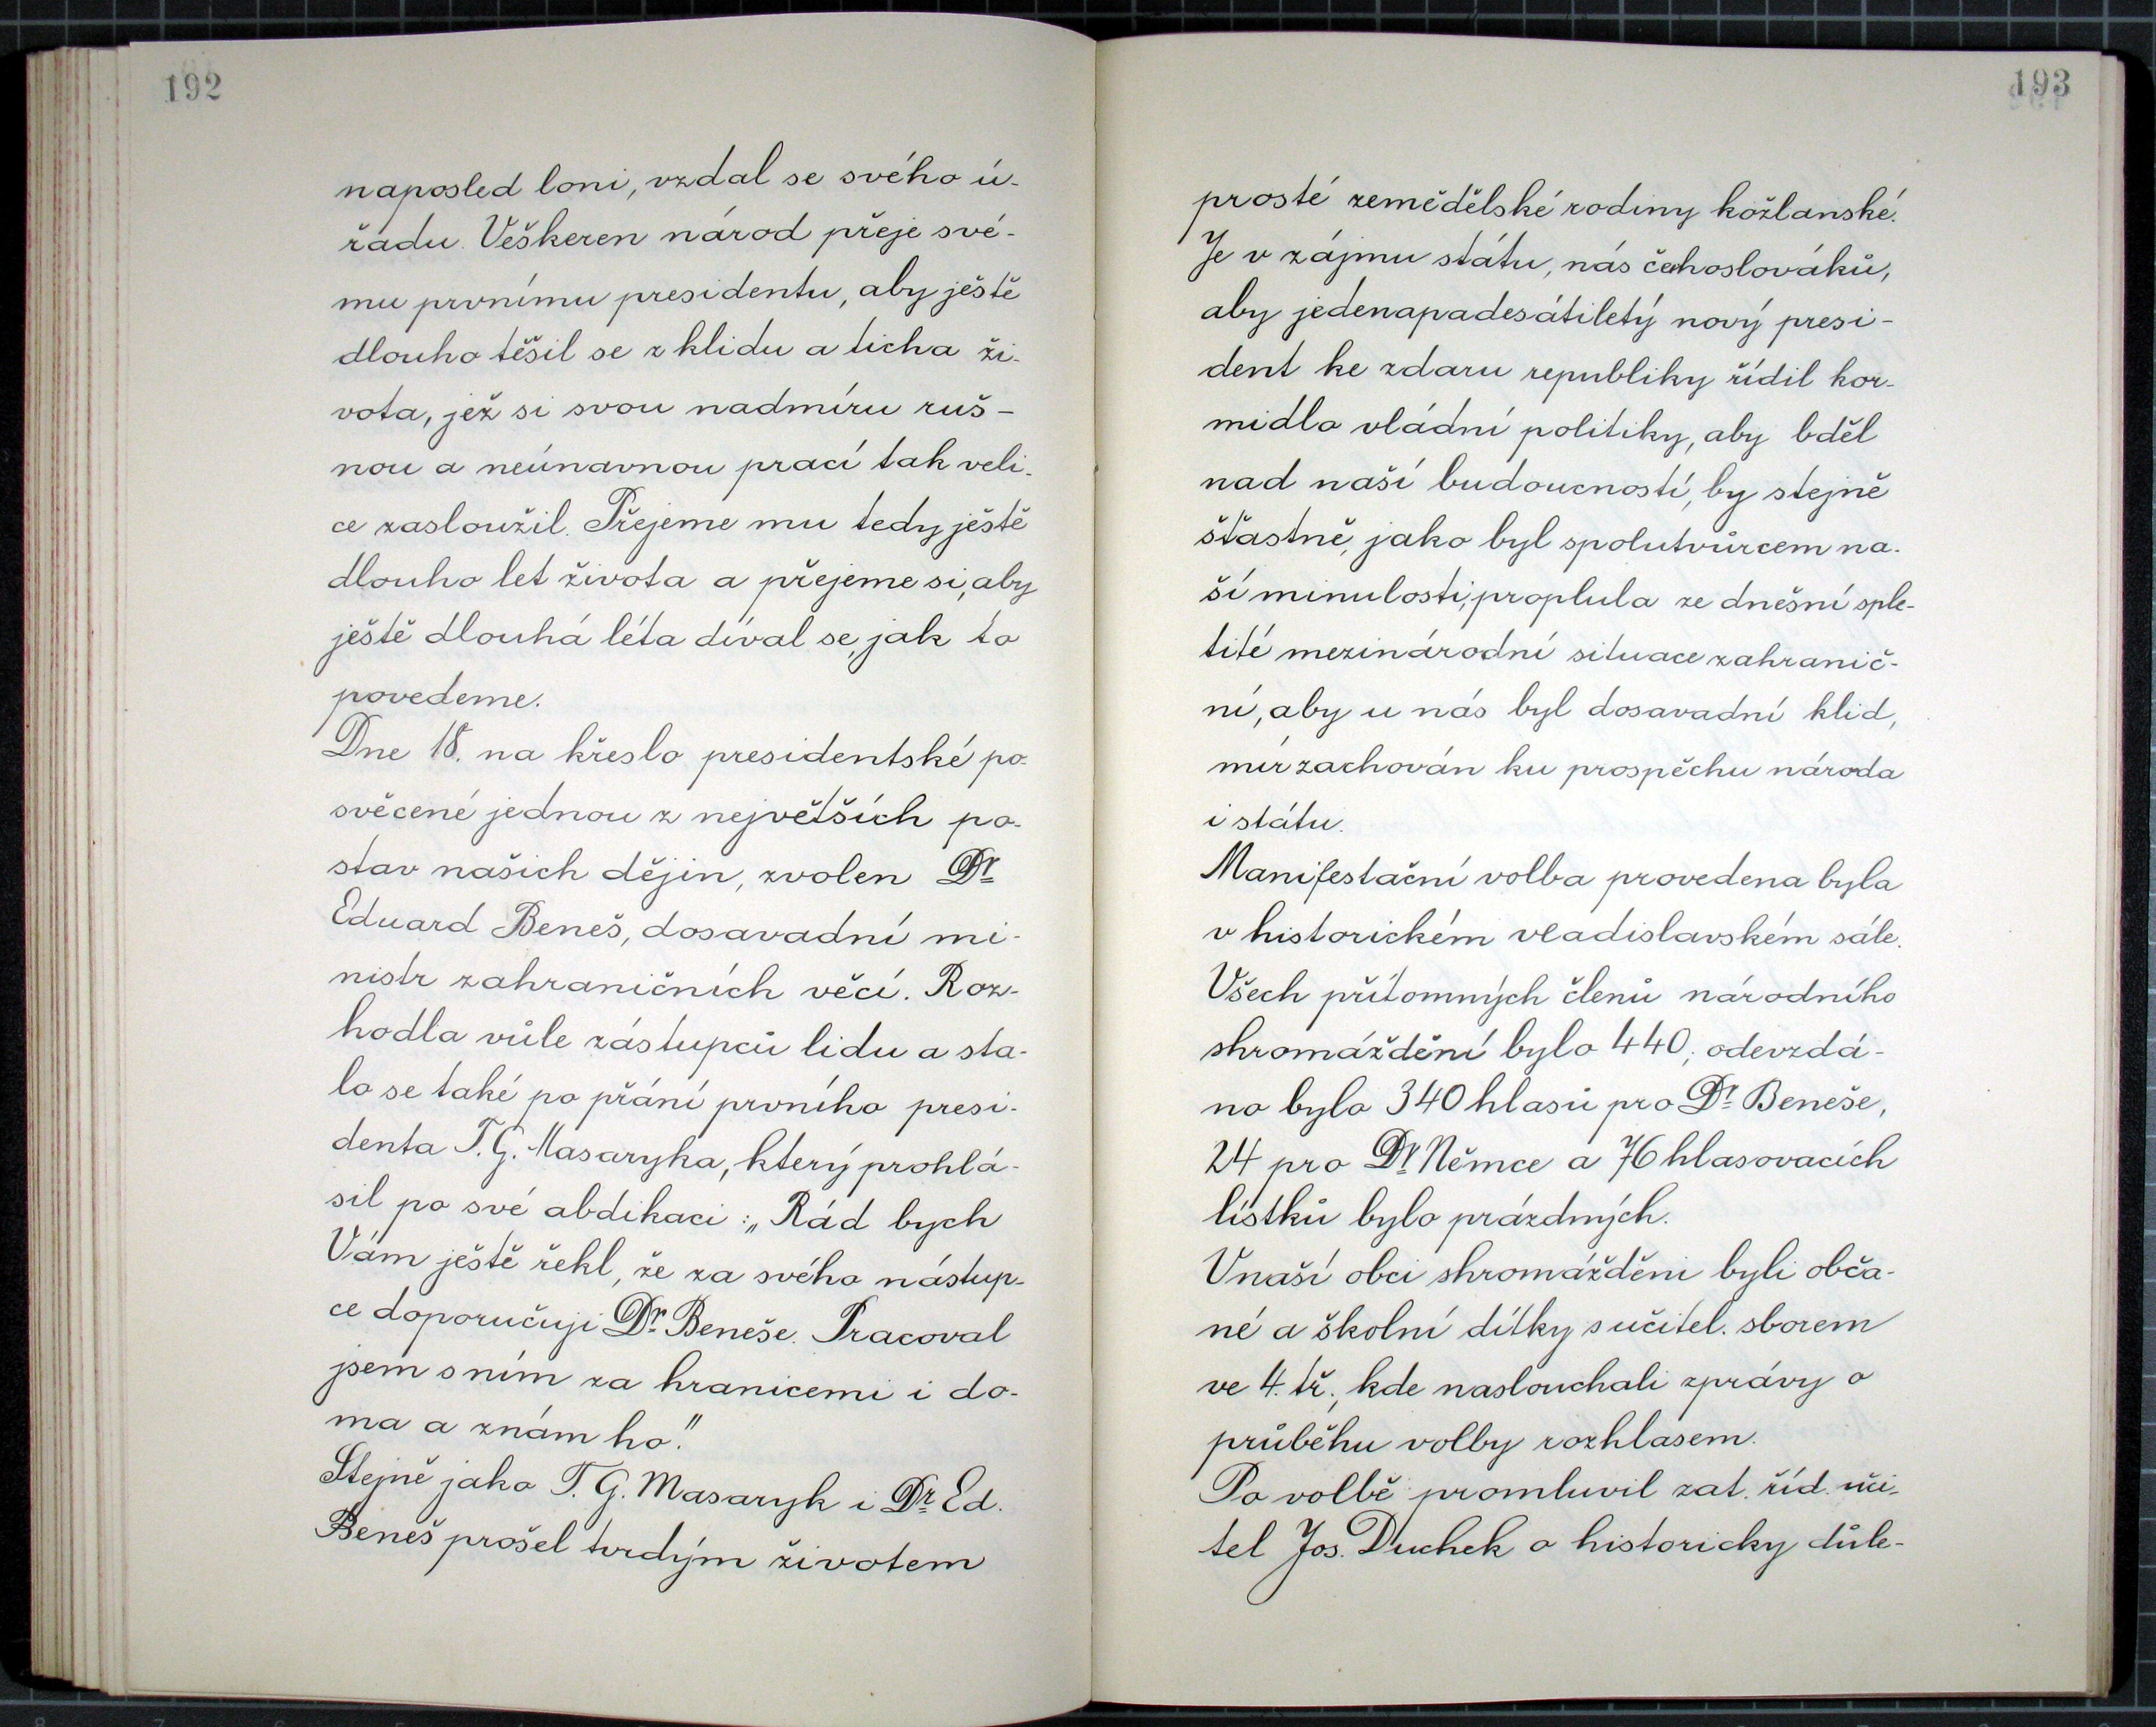 192
naposled loni, vzdal se svého ú-
řadu. Veškeren národ přeje své-
mu prvnímu presidentu, aby ještě
dlouho těšil se z klidu a ticha ži-
vota, jež si svou nadmíru ruš-
nou a neúnavnou prací tak veli-
ce zasloužil. Přejeme mu tedy ještě
dlouho let života a přejeme si, aby
ještě dlouhá léta díval se, jak to
povedeme.
Dne 18. na křeslo presidentské po-
svěcené jednou z největších po-
stav našich dějin, zvolen Dr
Eduard Beneš, dosavadní mi-
nistr zahraničních věcí. Roz-
hodla vůle zástupců lidu a sta-
lo se také po přání prvního presi-
denta T. G. Masaryka, který prohlá-
sil po své abdikaci: „Rád bych
Vám ještě řekl, že za svého nástup-
ce doporučuji Dr. Beneše. Pracoval
jsem s ním za hranicemi i do-
ma a znám ho."
Stejně jako T. G. Masaryk i Dr. Ed.
Beneš prošel tvrdým životem
193
prosté zemědělské rodiny kožlanské.
Je v zájmu státu, nás čechoslováků,
aby jedenapadesátiletý nový presi-
dent ke zdaru republiky řídil kor-
midlo vládní politiky, aby bděl
nad naší budoucností, by stejně
šťastně, jako byl spolutvůrcem na-
ší minulosti, proplula ze dnešní sple-
tité mezinárodní situace zahranič-
ní, aby u nás byl dosavadní klid,
mír zachován ku prospěchu národa
i státu.
Manifestační volba provedena byla
v historickém vladislavském sále.
Všech přítomných členů národního
shromáždění bylo 440; odevzdá-
no bylo 340 hlasů pro Dr. Beneše,
24 pro Dr. Němce a 76 hlasovacích
lístků bylo prázdných.
V naší obci shromážděni byli obča-
né a školní dítky s učitel. sborem
ve 4. tř., kde naslouchali zprávy o
průběhu volby rozhlasem.
Po volbě promluvil zat. říd. uči-
tel Jos. Duchek o historicky důle-